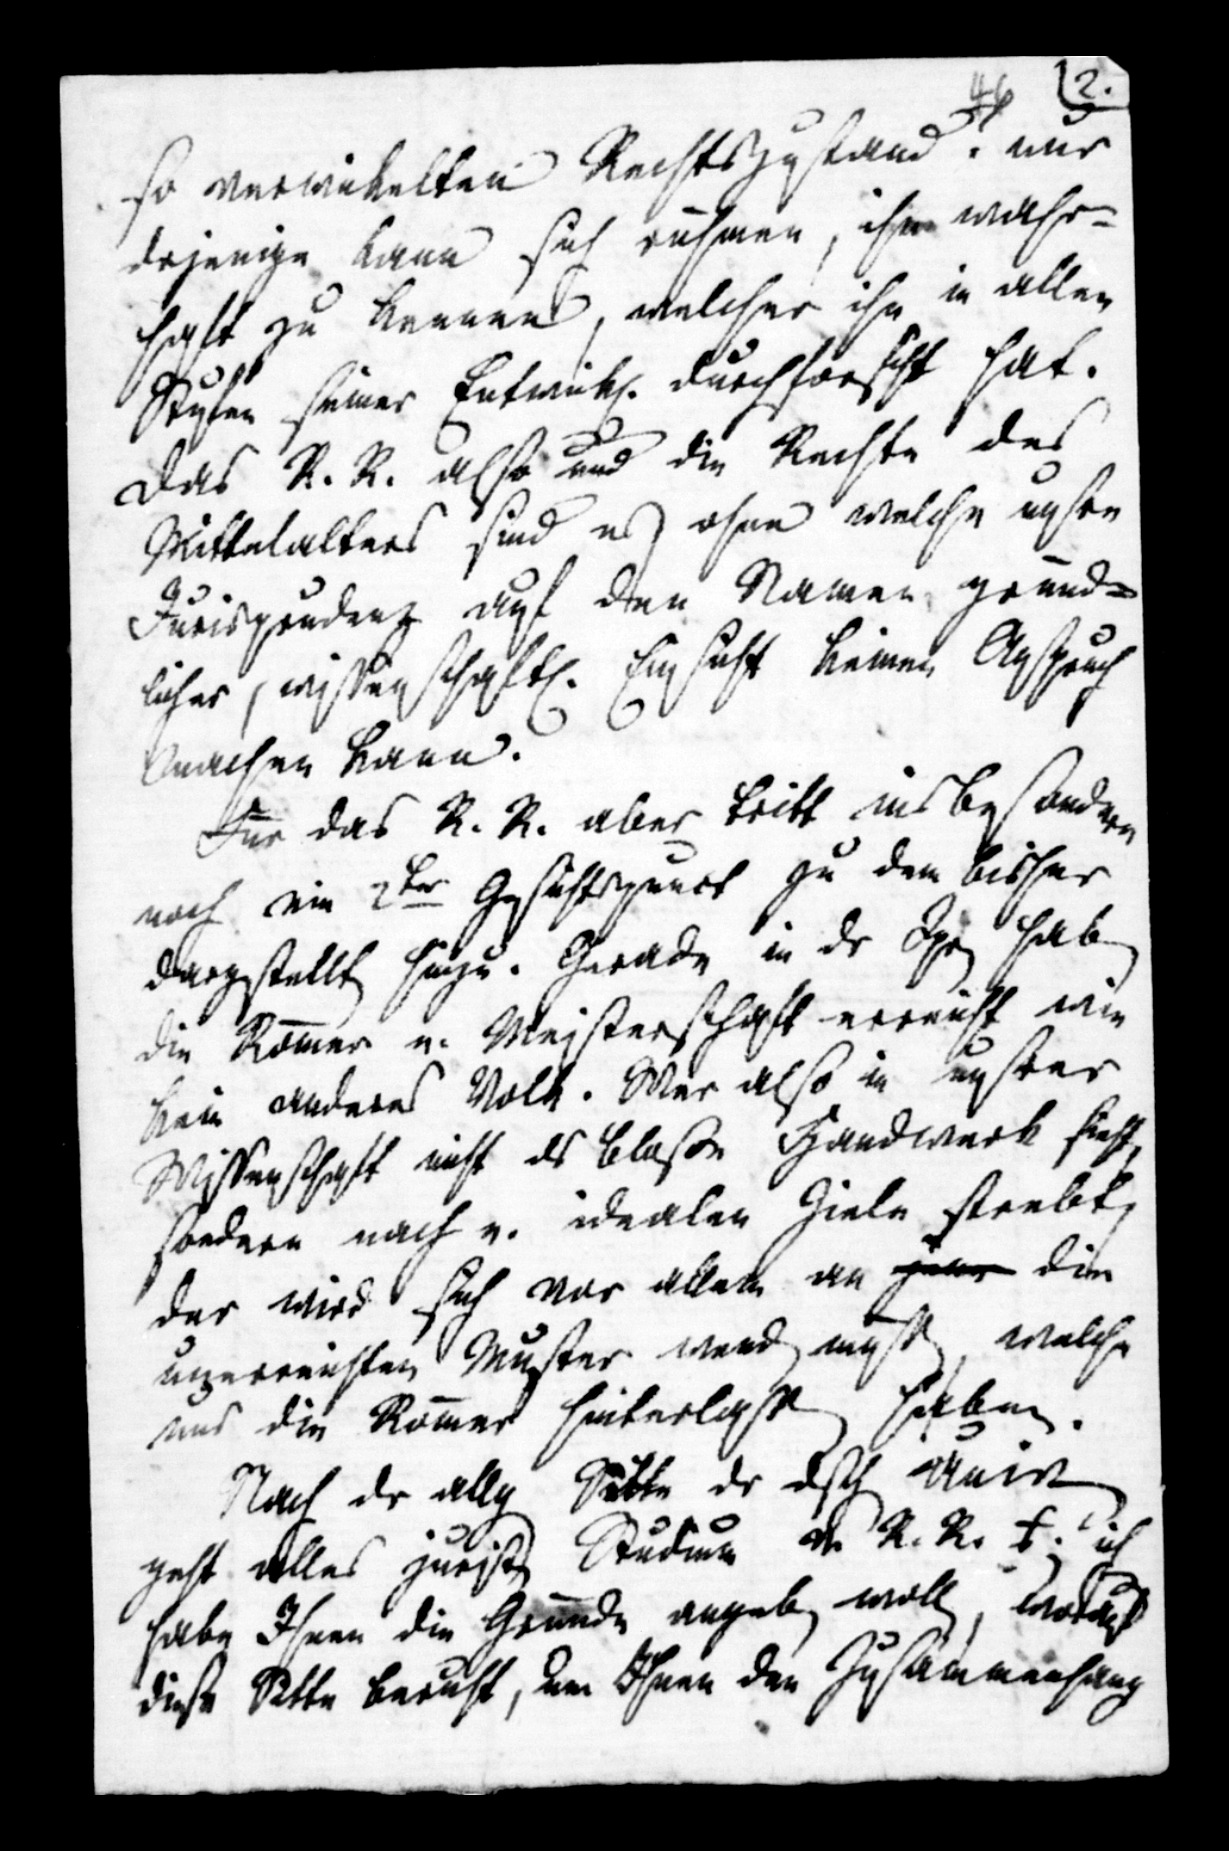 46 2.
so verwickelten Rechtszustand: nur
derjenige kann sich rühmen, ihn wahr-
haft zu kennen, welcher ihn in allen
Stufen seiner Entwickl. durchforscht hat.
Das R. R. also und die Rechte des
Mittelalters sind es, ohne welche unsre
Jurisprudenz auf den Namen gründ-
licher, wissenschaftl. Einsicht keinen Anspruch
machen kann.
Für das R. R. aber tritt insbesondere
noch ein 2ter Gesichtspunct zu dem bisher
dargestellten hinzu. Gerade in der haben
die Römer e. Meisterschaft erreicht wie
kein anderes Volk. Wer also in unsrer
Wissenschaft nicht das bloße Handwerk sieht,
sondern nach e. idealen Ziele strebt,
der wird sich vor allem an jene die
unerreichten Muster wenden müssen, welche
uns die Römer hinterlassen haben.
Nach der allg Sitte der dtsch Univ
geht alles jurist Studium v. R. R. ich
habe Ihnen die Gründe angeben wollen, worauf
diese Sitte beruht, um Ihnen den Zusammenhang